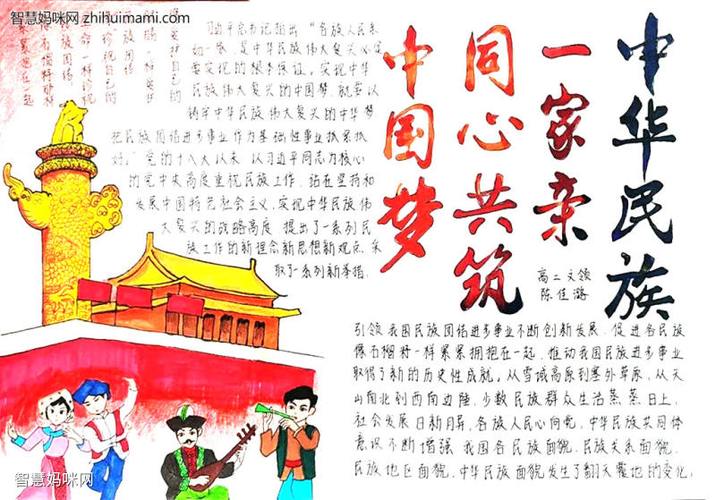 智慧妈咪网 zhihuimami.com
中华民族
一家亲
同心共筑
中国梦
高二文领
陈佳潞
像爱护自己的
眼睛一样爱护
民族团结
像珍视自己的
生命一样珍视
民族团结
像石榴籽那样
紧紧抱在一起
习近平总书记指出“各族人民亲
如一家，是中华民族伟大复兴必定
要实现的根本保证。实现中华
民族伟大复兴的中国梦，就要以
铸牢中华民族伟大复兴的中华梦
把民族团结进步事业作为基础性事业抓紧抓
好。”党的十八大以来，以习近平同志为核心
的党中央高度重视民族工作，站在坚持和
发展中国特色社会主义，实现中华民族伟
大复兴的战略高度，提出了一系列民
族工作的新理念新思想新观点，采
取了一系列新举措，
引领我国民族团结进步事业不断创新发展，促进各民族
像石榴籽一样紧紧拥抱在一起，推动我国民族进步事业
取得了新的历史性成就。从雪域高原到塞外草原，从天
山南北到西南边陲，少数民族群众生活蒸蒸日上，
社会发展日新月异，各族人民心向党，中华民族共同体
意识不断增强，我国各民族面貌，民族关系面貌，
民族地区面貌，中华民族面貌发生了翻天覆地的变化。
智慧妈咪网